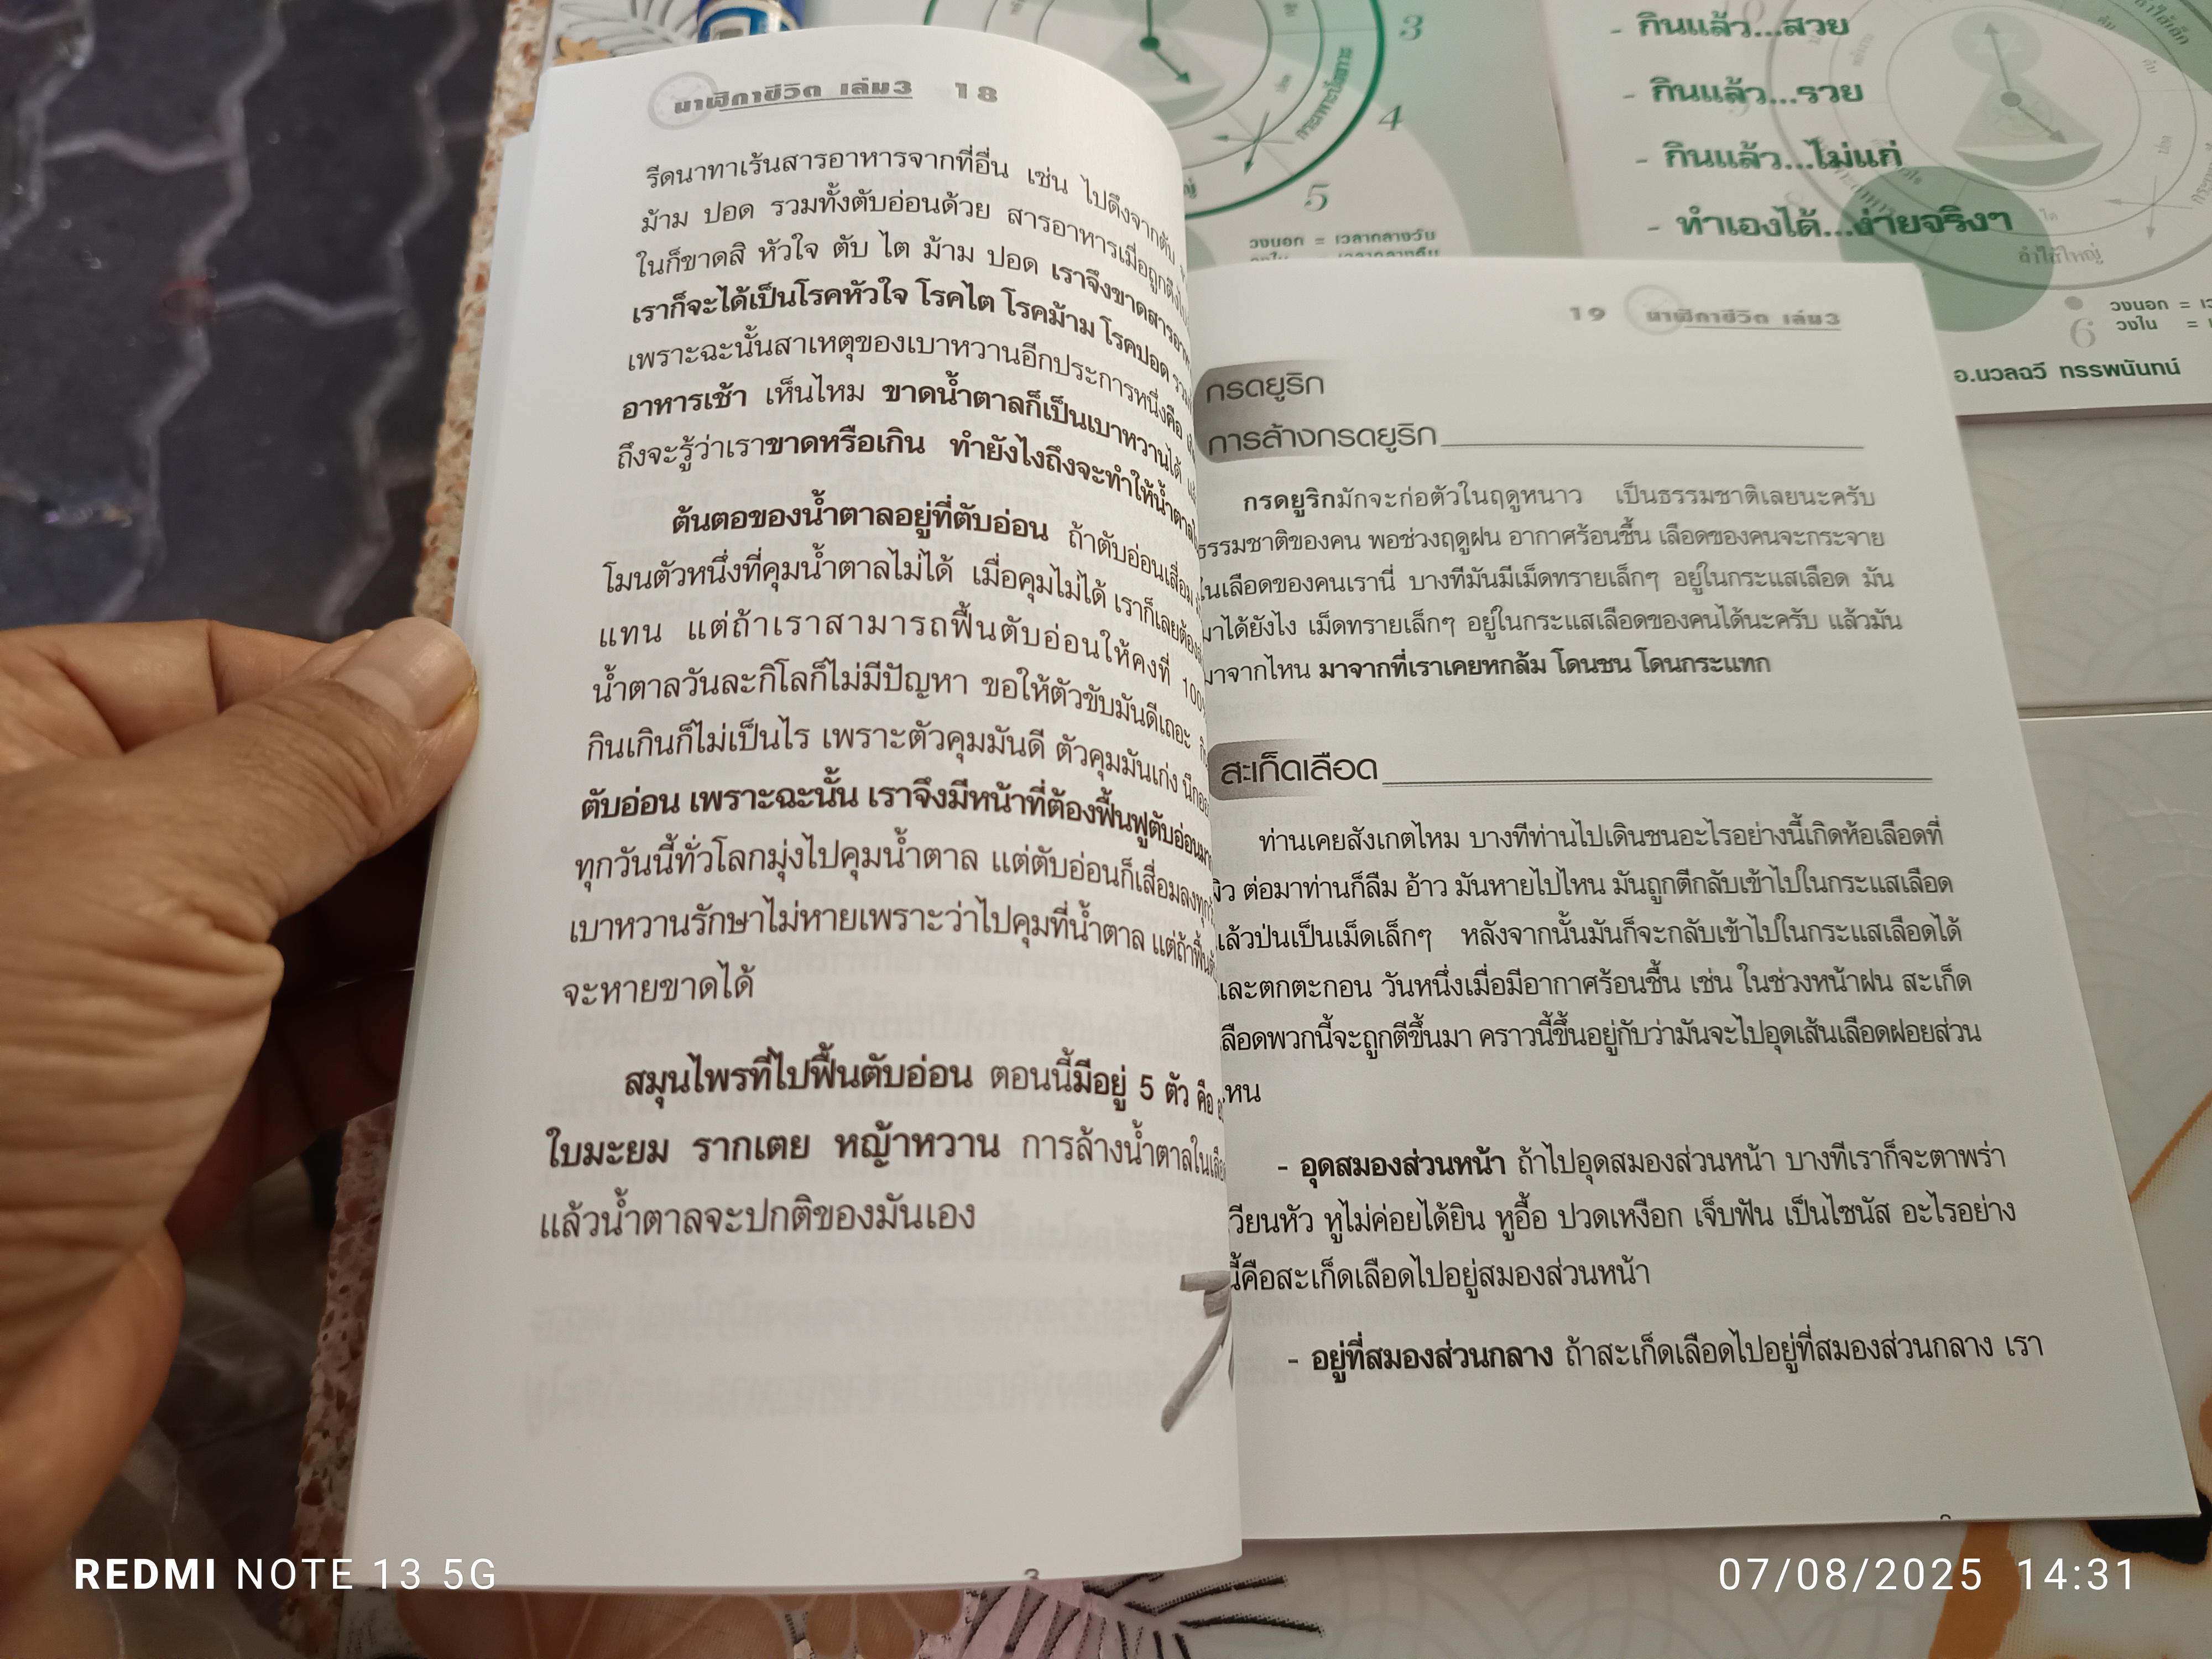 นาฬิกาชีวิต เล่ม3 18
รีดนาทาเร้นสารอาหารจากที่อื่น เช่น ไปดึงจากตับ
ม้าม ปอด รวมทั้งตับอ่อนด้วย สารอาหารเมื่อถูกดึงไป
ในก็ขาดสิ หัวใจ ตับ ไต ม้าม ปอด เราจึงขาดสารอาหาร
เราก็จะได้เป็นโรคหัวใจ โรคไต โรคม้าม โรคปอด
เพราะฉะนั้นสาเหตุของเบาหวานอีกประการหนึ่งคือ
อาหารเช้า เห็นไหม ขาดน้ำตาลก็เป็นเบาหวานได้
ถึงจะรู้ว่าเราขาดหรือเกิน ทำยังไงถึงจะทำให้น้ำตาล
ต้นตอของน้ำตาลอยู่ที่ตับอ่อน ถ้าตับอ่อนเสื่อม
โมนตัวหนึ่งที่คุมน้ำตาลไม่ได้ เมื่อคุมไม่ได้ เราก็เลยต้อง
แทน แต่ถ้าเราสามารถฟื้นตับอ่อนให้คงที่ 100
น้ำตาลวันละกิโลก็ไม่มีปัญหา ขอให้ตัวขับมันดีเถอะ
กินเกินก็ไม่เป็นไร เพราะตัวคุมมันดี ตัวคุมมันเก่ง
ตับอ่อน เพราะฉะนั้น เราจึงมีหน้าที่ต้องฟื้นฟูตับอ่อน
ทุกวันนี้ทั่วโลกมุ่งไปคุมน้ำตาล แต่ตับอ่อนก็เสื่อมลง
เบาหวานรักษาไม่หายเพราะว่าไปคุมที่น้ำตาล แต่ถ้าฟื้น
จะหายขาดได้
สมุนไพรที่ไปฟื้นตับอ่อน ตอนนี้มีอยู่ 5 ตัว คือ
ใบมะยม รากเตย หญ้าหวาน การล้างน้ำตาลใน
แล้วน้ำตาลจะปกติของมันเอง
19 นาฬิกาชีวิต เล่ม3
กรดยูริก
การล้างกรดยูริก
กรดยูริกมักจะก่อตัวในฤดูหนาว เป็นธรรมชาติเลยนะครับ
ธรรมชาติของคน พอช่วงฤดูฝน อากาศร้อนชื้น เลือดของคนจะกระจาย
ในเลือดของคนเรานี่ บางทีมันมีเม็ดทรายเล็กๆ อยู่ในกระแสเลือด มัน
มาได้ยังไง เม็ดทรายเล็กๆ อยู่ในกระแสเลือดของคนได้นะครับ แล้วมัน
มาจากไหน มาจากที่เราเคยหกล้ม โดนชน โดนกระแทก
สะเก็ดเลือด
ท่านเคยสังเกตไหม บางทีท่านไปเดินชนอะไรอย่างนี้เกิดห้อเลือดที่
ผิว ต่อมาท่านก็ลืม อ้าว มันหายไปไหน มันถูกตีกลับเข้าไปในกระแสเลือด
แล้วป่นเป็นเม็ดเล็กๆ หลังจากนั้นมันก็จะกลับเข้าไปในกระแสเลือดได้
และตกตะกอน วันหนึ่งเมื่อมีอากาศร้อนชื้น เช่น ในช่วงหน้าฝน สะเก็ด
เลือดพวกนี้จะถูกตีขึ้นมา คราวนี้ขึ้นอยู่กับว่ามันจะไปอุดเส้นเลือดฝอยส่วน
ไหน
- อุดสมองส่วนหน้า ถ้าไปอุดสมองส่วนหน้า บางทีเราก็จะตาพร่า
เวียนหัว หูไม่ค่อยได้ยิน หูอื้อ ปวดเหงือก เจ็บฟัน เป็นไซนัส อะไรอย่าง
นี้คือสะเก็ดเลือดไปอยู่สมองส่วนหน้า
- อยู่ที่สมองส่วนกลาง ถ้าสะเก็ดเลือดไปอยู่ที่สมองส่วนกลาง เรา
3
4
5
กระเพาะปัสสาวะ
วงนอก = เวลากลางวัน
- กินแล้ว...สวย
- กินแล้ว...รวย
- กินแล้ว...ไม่แก่
- ทำเองได้...ง่ายจริงๆ
ลำไส้ใหญ่
6
วงนอก =
วงใน =
อ.นวลฉวี ทรรพนันทน์
REDMI NOTE 13 5G
07/08/2025 14:31